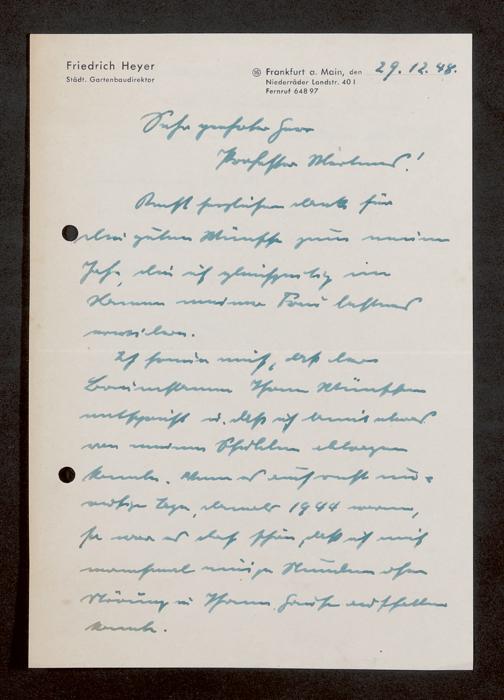 Friedrich Heyer
Städt. Gartenbaudirektor
⑯ Frankfurt a. Main, den 29.12.48.
Niederräder Landstr. 40 I
Fernruf 648 97
Sehr geehrter Herr
Professor !
Recht herzlichen Dank für
die guten Wünsche zum neuen
Jahr, die ich gleichzeitig im
Namen meiner Frau bestens
erwidere.
Ich freue mich, daß der
Baumstamm Ihren Wünschen
entspricht u. daß ich damit etwas
von meinen Schulden abtragen
konnte. Wenn es auch recht
Tage, damals 1944 waren,
so war es doch schön, daß ich mich
manchmal einige Stunden ohne
Störung in Ihrem Hause aufhalten
konnte.